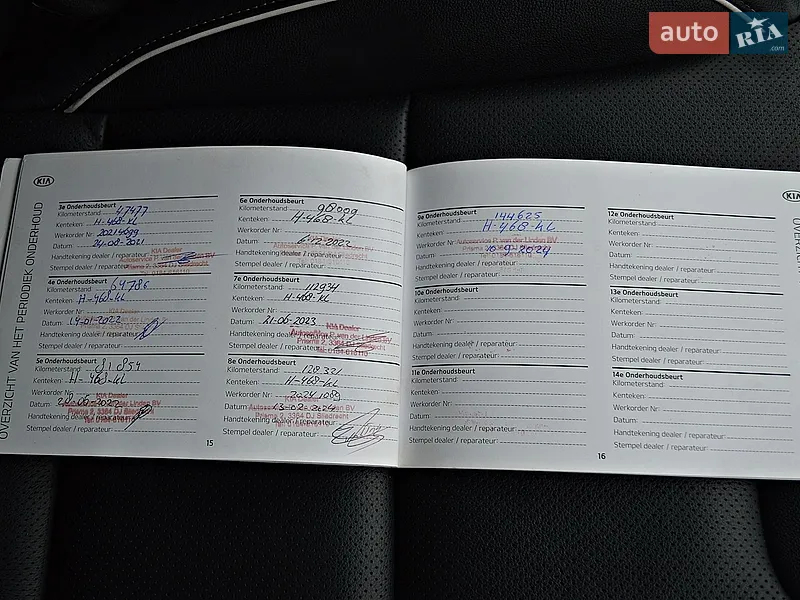 auto RIA .com
KIA
OVERZICHT VAN HET PERIODIEK ONDERHOUD
3e Onderhoudsbeurt
Kilometerstand: 47477
Kenteken: H-468-KL
Werkorder Nr:
Datum: 24-08-2021
Handtekening dealer / reparateur:
Stempel dealer / reparateur:
KIA Dealer
Autoservice P. van der Linden BV
Prisma 2, 3364 DJ Sliedrecht
4e Onderhoudsbeurt
Kilometerstand: 64786
Kenteken: H-468-KL
Werkorder Nr:
Datum: 14-01-2022
Handtekening dealer / reparateur:
Stempel dealer / reparateur:
5e Onderhoudsbeurt
Kilometerstand: 81854
Kenteken: H-468-KL
Werkorder Nr:
Datum:
Handtekening dealer / reparateur:
Stempel dealer / reparateur:
KIA Dealer
Autoservice P. van der Linden BV
Prisma 2, 3364 DJ Sliedrecht
6e Onderhoudsbeurt
Kilometerstand: 98009
Kenteken: H-468-KL
Werkorder Nr:
Datum: 6-12-2022
Handtekening dealer / reparateur:
Stempel dealer / reparateur:
7e Onderhoudsbeurt
Kilometerstand: 112934
Kenteken: H-468-KL
Werkorder Nr:
Datum: 21-06-2023
Handtekening dealer / reparateur:
Stempel dealer / reparateur:
KIA Dealer
Autoservice P. van der Linden BV
Prisma 2, 3364 DJ Sliedrecht
8e Onderhoudsbeurt
Kilometerstand: 128321
Kenteken: H-468-KL
Werkorder Nr: 20241089
Datum: 13-02-2024
Handtekening dealer / reparateur:
Stempel dealer / reparateur:
15
9e Onderhoudsbeurt
Kilometerstand: 144625
Kenteken: H-468-KL
Werkorder Nr:
Datum: 10-9-2024
Handtekening dealer / reparateur:
Stempel dealer / reparateur:
Autoservice P. van der Linden BV
10e Onderhoudsbeurt
Kilometerstand:
Kenteken:
Werkorder Nr:
Datum:
Handtekening dealer / reparateur:
Stempel dealer / reparateur:
11e Onderhoudsbeurt
Kilometerstand:
Kenteken:
Werkorder Nr:
Datum:
Handtekening dealer / reparateur:
Stempel dealer / reparateur:
12e Onderhoudsbeurt
Kilometerstand:
Kenteken:
Werkorder Nr:
Datum:
Handtekening dealer / reparateur:
Stempel dealer / reparateur:
13e Onderhoudsbeurt
Kilometerstand:
Kenteken:
Werkorder Nr:
Datum:
Handtekening dealer / reparateur:
Stempel dealer / reparateur:
14e Onderhoudsbeurt
Kilometerstand:
Kenteken:
Werkorder Nr:
Datum:
Handtekening dealer / reparateur:
Stempel dealer / reparateur:
16